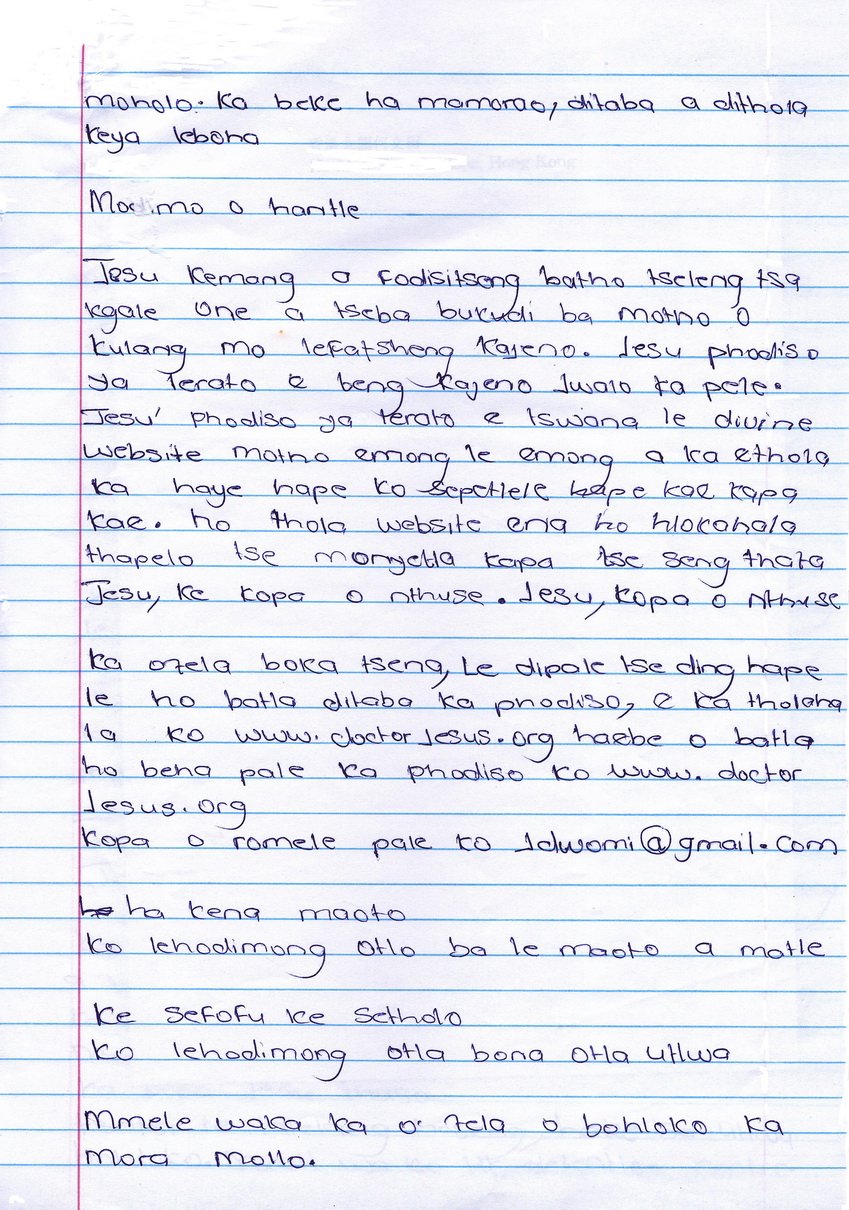 moholo. Ka beke ha mamorao, ditaba a dithola
keya lebona
Modimo o hantle
Jesu kemang o fodisitseng batho tseleng tsa
kgale one a tseba bukudi ba motho o
kulang mo lefatsheng kajeno. Jesu phodiso
ya lerato e beng kajeno Jwalo ka pele.
Jesu' phodiso ya lerato e tswana le divine
website motho emong le emong a ka ethola
ka haye hape ko sepetlele hape kae kapa
kae. ho thola website ena ho hlokahala
thapelo tse monyetla kapa tse seng thata
Jesu, ke kopa o nthuse. Jesu, kopa o nthuse
ka otela boka tseng, Le dipale tse ding hape
le ho batla ditaba ka phodiso, e ka tholaha
la ko www.doctorJesus.org haebe o batla
ho bena pale ka phodiso ko www.doctor
Jesus.org
kopa o romele pale ko Jdwomi@gmail.com
ha kena maoto
ko lehodimong otlo ba le maoto a matle
ke sefofu ke setholo
ko lehodimong otla bona otla utlwa
Mmele waka ka o' tela o bohloko ka
mora mollo.